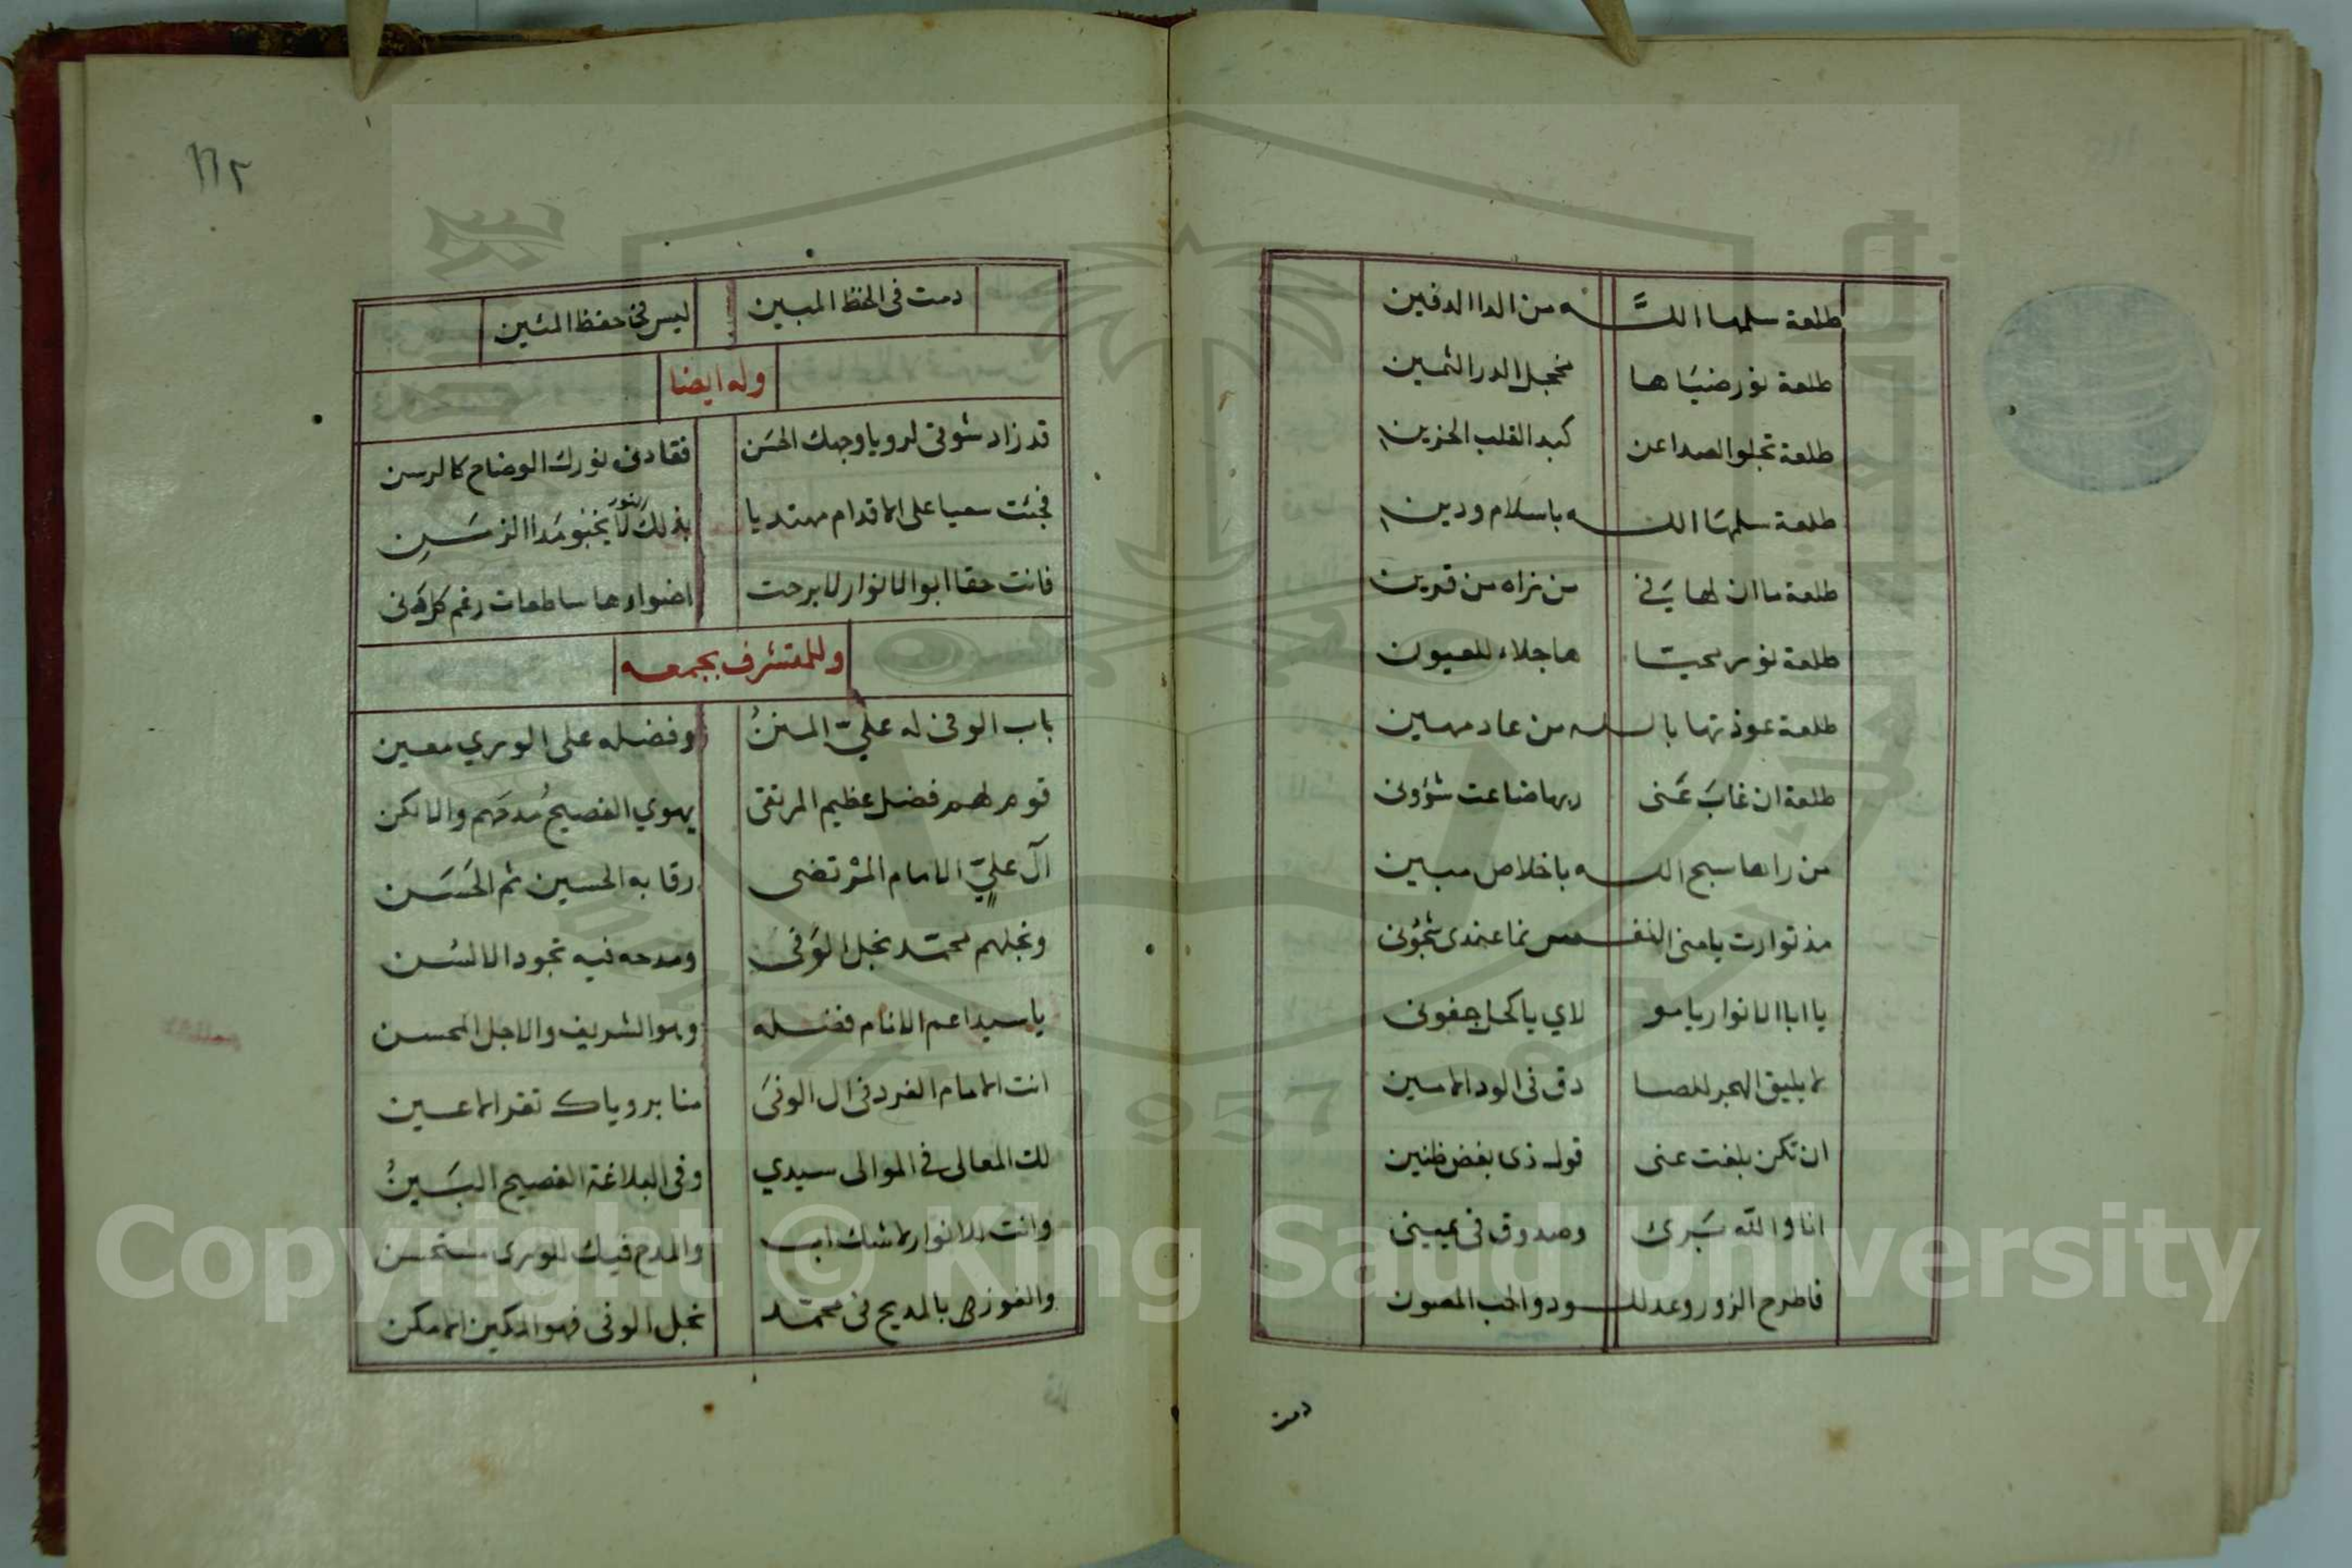 طلعة سلمها اللّـه من الدا الدفين
طلعة نور ضيَاها مخجل الدر الثمين
طلعة تجلو الصدا عن كبد القلب الحزين
طلعة سلمهَا اللـه باسلام ودين
طلعة ما ان لها يَ في من نراه من قرين
طلعة نور محيّا ها جلاء للعيون
طلعة عوذتها باللـه من عاد مهين
طلعة ان غابَ عَنى ربها ضاعت شؤونى
من راها سبح اللـه باخلاص مبين
مذ توارت يا منى النفـس نما عندى شجُونى
يا ابا الانوار يا مو لاي يا كحل جفونى
لا يليق الهجر للصا دق فى الود الامين
ان تكن بلغت عنى قول ذى بغض ظنين
انا والله بَرى وصدوق فى يمينى
فاطرح الزور وعد للـود والحب المصون
دمت
١١٢
دمت فى الحظ المبين ليس فى حفظ المئين
وله ايضا
قد زاد شوقى لرويا وجهك الحسَن فقادنى نورك الوضاح كالرسن
فجئت سعيا على الاقدام مهتديا بذلك النور لا يخبو مَدا الزمَـنِ
فانت حقا ابو الانوار لا برحت اضواءها ساطعات رغم كل دنى
وللمتشرف بجمعه
باب الوفى له عليّ المننُ وفضله على الورى معين
قوم لهم فضل عظيم المرتقى يهوي الفصيحُ مدحَهم والالكن
آل عليّ الامام المرْتضى رقا به الحسين ثم الحَسَـن
ونجلهم محمّد نجل الوَفى ومدحه فيه تجود الالسُـن
يا سيدا عم الانام فضـله وهو الشريف والاجل المحسن
انت الامام الفرد فى ال الوفىَ منا برؤياك تقر الاعـين
لك المعالى فى الموالى سيدي وفى البلاغة الفصيح البَـينُ
وانت للانوار لا شك اب والمدح فيك للورى مستحسن
والفوز لى بالمديح فى محمّد نجل الوفى فهو المكين الامكن
Copyright © King Saud University
1957